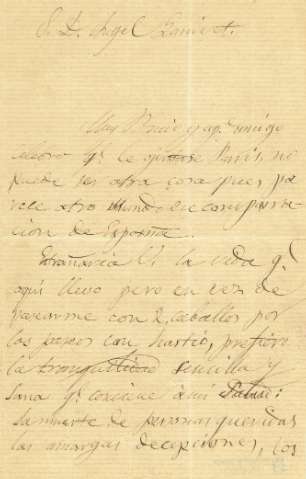 S. D. Angel Ganivet.
Muy Sr mio y ap.º amigo
celebro q. le guste Paris, no
puede ser otra cosa pues pa
rece otro Mundo en compara
ción de España.
Extrañaría V. la vida q.
aqui llevo pero en vez de
pasearme con 2 caballos por
los paseos con hastio, prefiero
la tranquilidad sencilla y
sana q. conviene á mi salud:
la muerte de personas queridas
las amargas decepciones, los